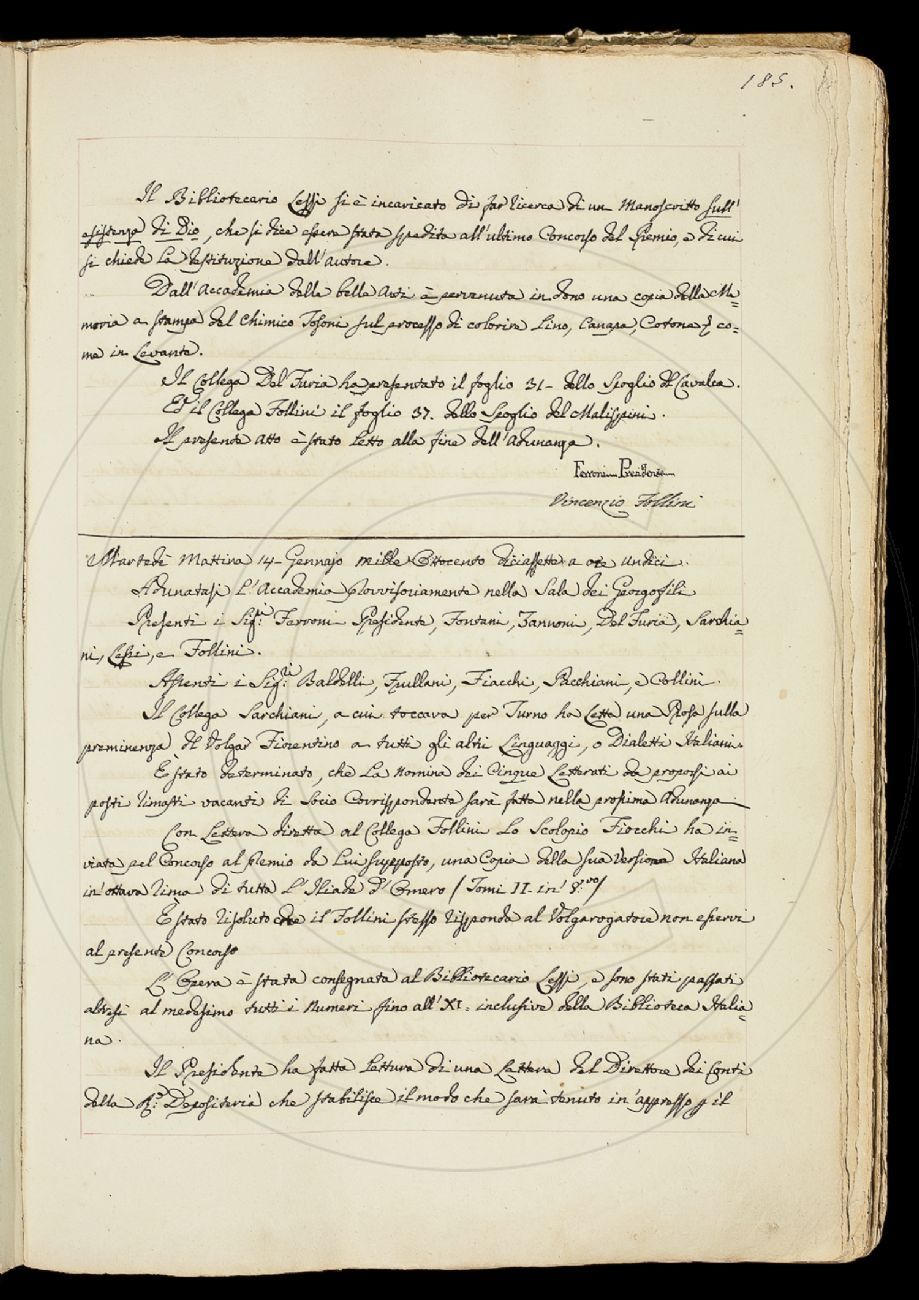 185.
Il Bibliotecario Lessi si è incaricato di far ricerca di un Manoscritto sull'
esistenza di Dio, che si dice essere stato spedito all'ultimo Concorso del Premio, e di cui
si chiede la restituzione dall'autore.
Dall'Accademia delle belle Arti è pervenuta in dono una copia della Me=
moria a stampa del Chimico Tosoni sul processo di colorire Lino, Canapa, Cotone & co=
me in Levante.
Il Collega Del Furia ha presentato il foglio 31- dello Spoglio del Cavalca.
Ed il Collega Follini il foglio 37. dello Spoglio del Malispini.
Il presente Atto è stato Letto alla fine dell'Adunanza.
Ferroni Presidente
Vincenzio Follini
Martedì Mattina 14- Gennajo mille Ottocento diciassette a ore undici.
Adunatasi L'Accademia provvisoriamente nella Sala dei Georgofili
Presenti i Sigri. Ferroni Presidente, Fontani, Zannoni, Del Furia, Sarchia=
ni, Lessi, e Follini.
Assenti i Sigri. Baldelli, Frullani, Fiacchi, Pacchiani, e Collini.
Il Collega Sarchiani, a cui toccava per Turno ha Letta una Prosa sulla
preminenza del Volgar Fiorentino a tutti gli altri Linguaggi, o Dialetti Italiani.
È stato determinato, che La nomina dei Cinque Letterati da proporsi ai
posti rimasti vacanti di Socio Corrispondente sarà fatta nella prossima Adunanza
Con Lettera diretta al Collega Follini Lo Scolopio Fiocchi ha in=
viata pel Concorso al Premio da Lui supposto, una Copia della sua Versione Italiana
in ottava rima di tutta L'Iliade d'Omero (Tomi II. in 8.vo)
È stato risoluto che il Follini stesso risponda al Volgarogatore non esservi
al presente Concorso
L'Opera è stata consegnata al Bibliotecario Lessi, e sono stati passati
altresì al medesimo tutti i Numeri fino all'XI. inclusive della Biblioteca Italia=
na.
Il Presidente ha fatta Lettura di una Lettera del Direttore dei Conti
della R. Depositeria che stabilisce il modo che sarà tenuto in appresso p il